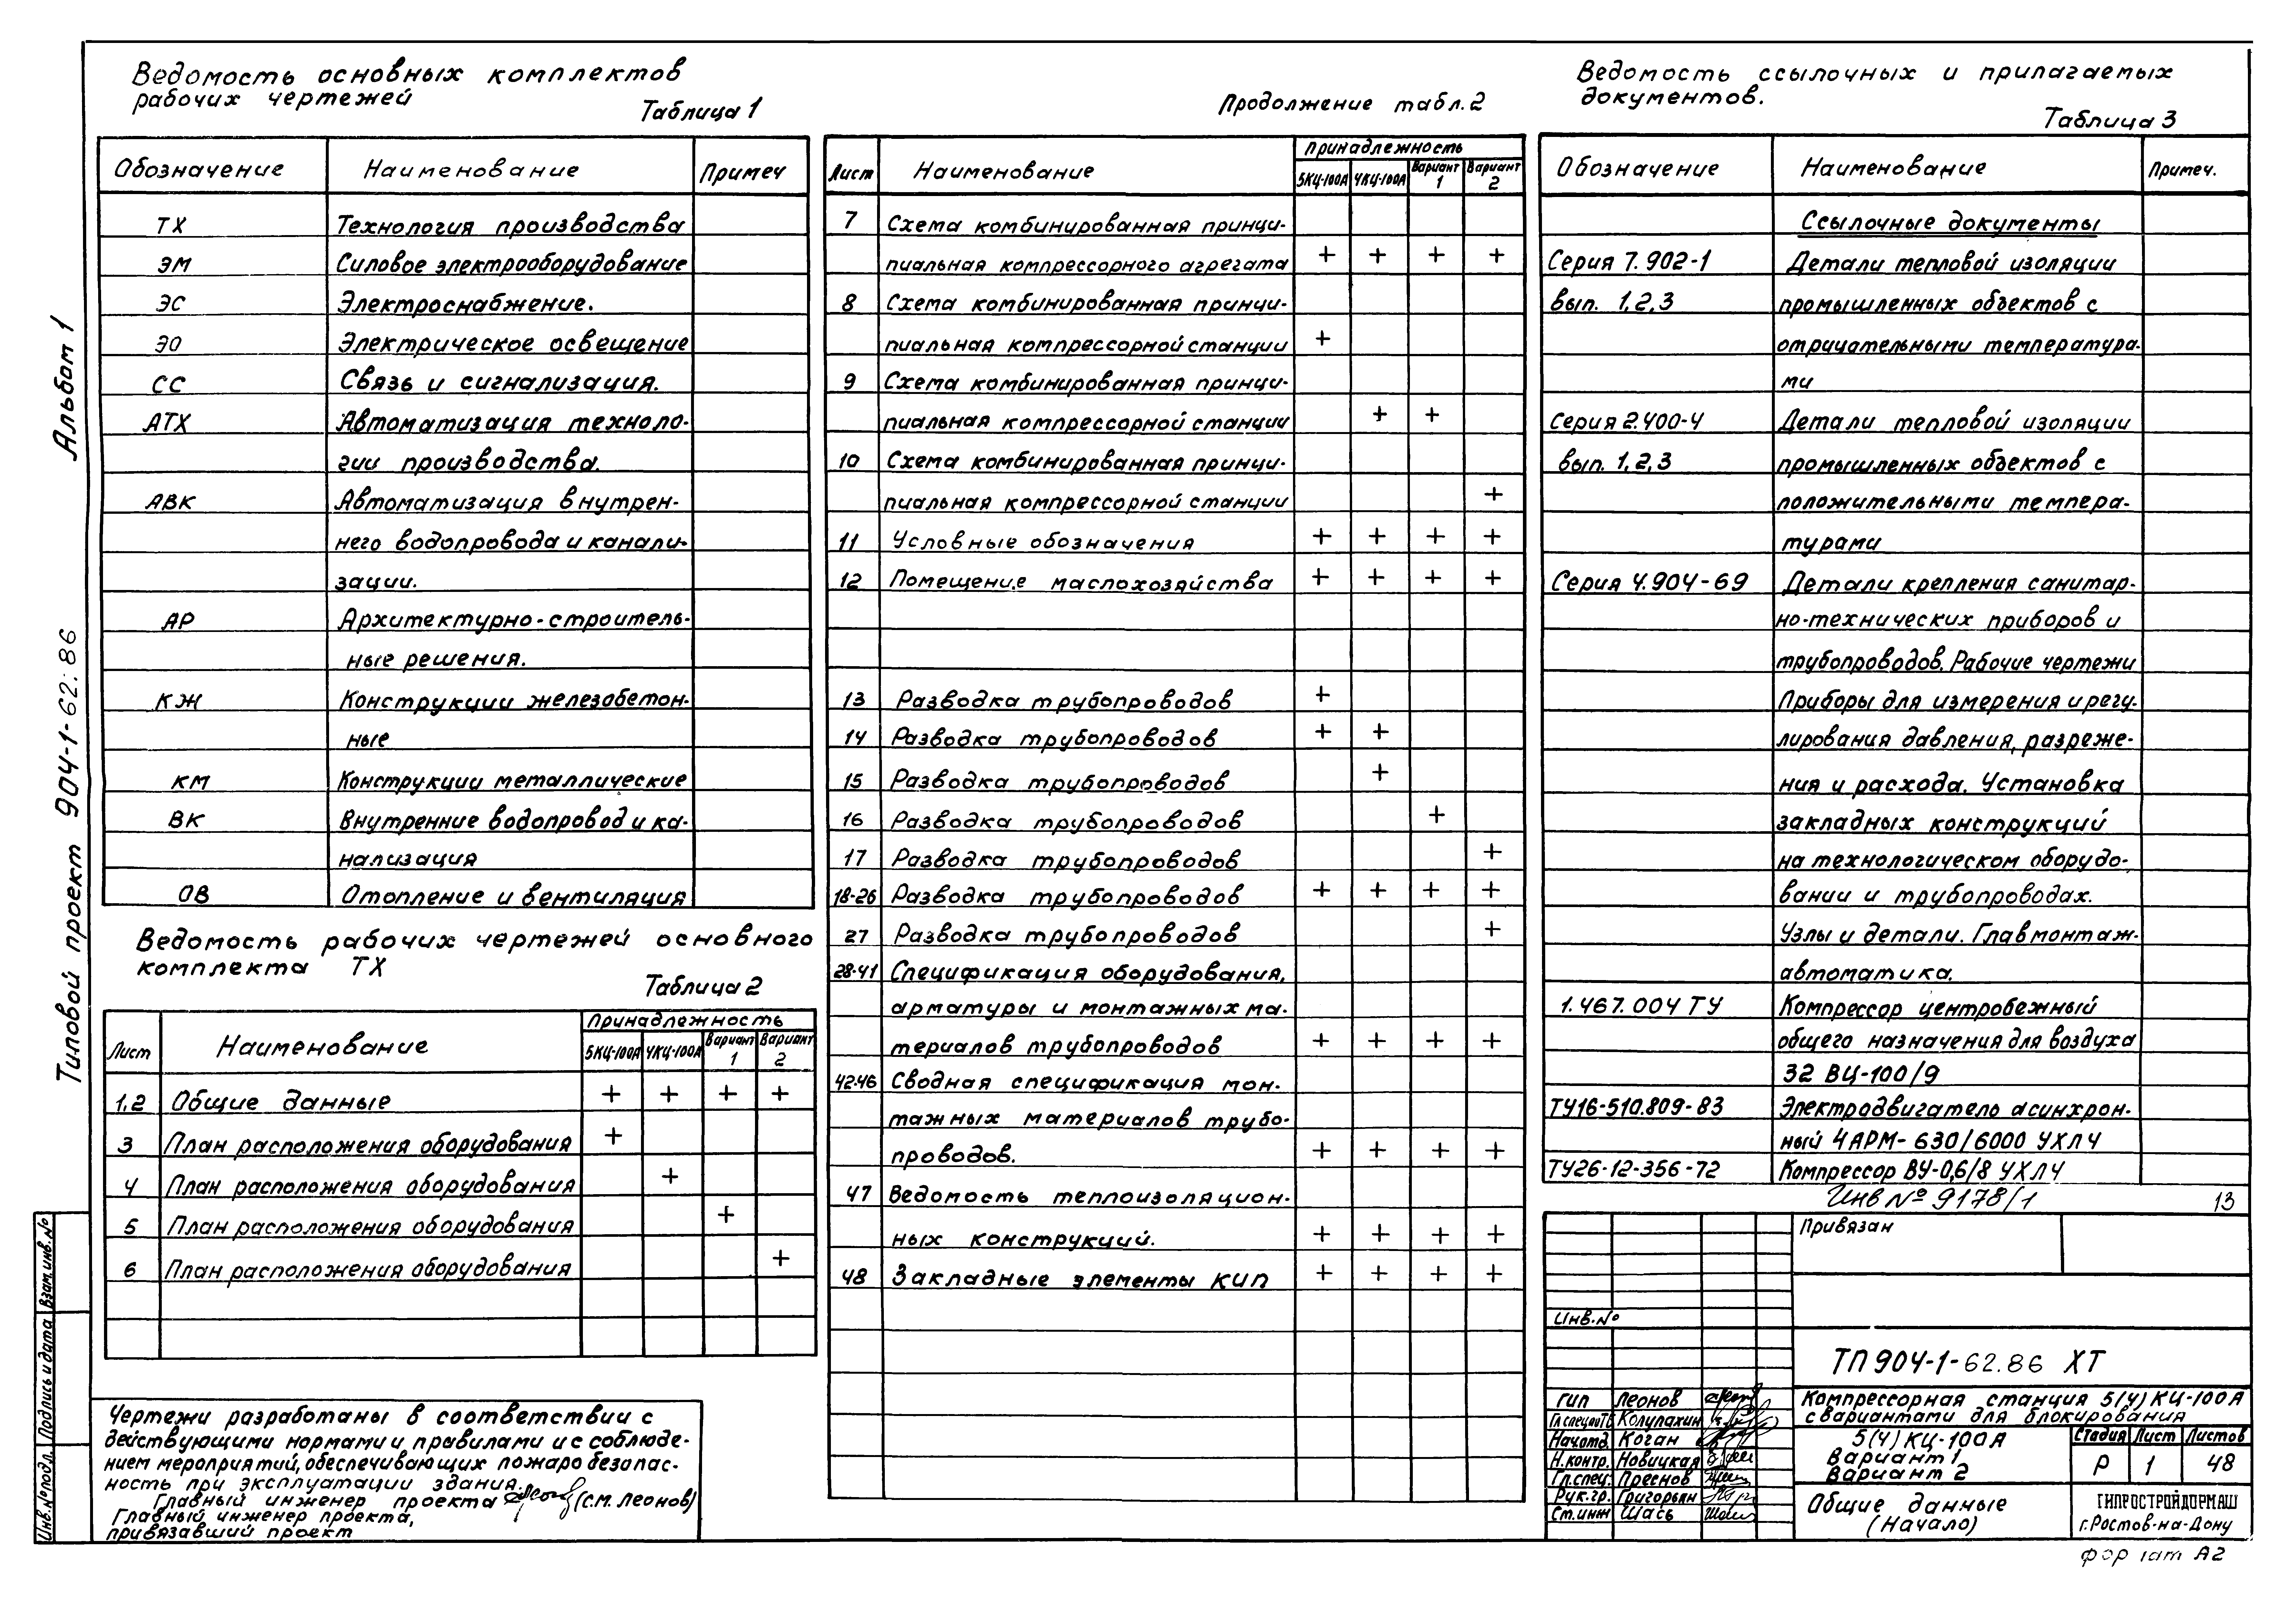 Альбом 1
Типовой проект 904-1-62.86
Взам.инв.№
Подпись и дата
Инв.№подл.
Ведомость основных комплектов
рабочих чертежей
Таблица 1
Обозначение Наименование Примеч
ТХ Технология производства
ЭМ Силовое электрооборудование
ЭС Электроснабжение.
ЭО Электрическое освещение
СС Связь и сигнализация.
АТХ Автоматизация техноло-
гии производства.
АВК Автоматизация внутрен-
него водопровода и канали-
зации.
АР Архитектурно-строитель-
ные решения.
КЖ Конструкции железобетон-
ные
КМ Конструкции металлические
ВК Внутренние водопровод и ка-
нализация
ОВ Отопление и вентиляция
Ведомость рабочих чертежей основного
комплекта ТХ
Таблица 2
Лист Наименование Принадлежность
5КЦ-100А 4КЦ-100А Вариант 1 Вариант 2
1,2 Общие данные + + + +
3 План расположения оборудования +
4 План расположения оборудования +
5 План расположения оборудования +
6 План расположения оборудования +
Чертежи разработаны в соответствии с
действующими нормами и правилами и с соблюде-
нием мероприятий, обеспечивающих пожаробезопас-
ность при эксплуатации здания.
Главный инженер проекта (С.М. Леонов)
Главный инженер проекта,
привязавший проект
Продолжение табл. 2
Лист Наименование Принадлежность
5КЦ-100А 4КЦ-100А Вариант 1 Вариант 2
7 Схема комбинированная принци-
пиальная компрессорного агрегата + + + +
8 Схема комбинированная принци-
пиальная компрессорной станции +
9 Схема комбинированная принци-
пиальная компрессорной станции + +
10 Схема комбинированная принци-
пиальная компрессорной станции +
11 Условные обозначения + + + +
12 Помещение маслохозяйства + + + +
13 Разводка трубопроводов +
14 Разводка трубопроводов + +
15 Разводка трубопроводов +
16 Разводка трубопроводов +
17 Разводка трубопроводов +
18-26 Разводка трубопроводов + + + +
27 Разводка трубопроводов +
28-41 Спецификация оборудования,
арматуры и монтажных ма-
териалов трубопроводов + + + +
42-46 Сводная спецификация мон-
тажных материалов трубо-
проводов. + + + +
47 Ведомость теплоизоляцион-
ных конструкций. + + + +
48 Закладные элементы КИП + + + +
Ведомость ссылочных и прилагаемых
документов.
Таблица 3
Обозначение Наименование Примеч.
Ссылочные документы
Серия 7.902-1 Детали тепловой изоляции
вып. 1,2,3 промышленных объектов с
отрицательными температура-
ми
Серия 2.400-4 Детали тепловой изоляции
вып. 1,2,3 промышленных объектов с
положительными темпера-
турами
Серия 4.904-69 Детали крепления санитар-
но-технических приборов и
трубопроводов. Рабочие чертежи
Приборы для измерения и регу-
лирования давления, разреже-
ния и расхода. Установка
закладных конструкций
на технологическом оборудо-
вании и трубопроводах.
Узлы и детали. Главмонтаж-
автоматика.
1.467.004 ТУ Компрессор центробежный
общего назначения для воздуха
32 ВЦ-100/9
ТУ16-510.809-83 Электродвигатель асинхрон-
ный 4АРМ-630/6000 УХЛ4
ТУ26-12-356-72 Компрессор ВУ-0,6/8 УХЛ4
Инв № 9178/1 13
Привязан
Инв.№
ТП 904-1-62.86 ХТ
Компрессорная станция 5(4)КЦ-100А
с вариантами для блокирования
ГИП Леонов
Гл.спец.по ТЕ Колупахин
Нач.отд. Коган
Н.контр. Новицкая
Гл.спец. Преснов
Рук.гр. Григорьян
Ст.инж Шась
5(4)КЦ-100А
Вариант 1
Вариант 2
Стадия Лист Листов
Р 1 48
Общие данные
(Начало)
ГИПРОСТРОЙДОРМАШ
г.Ростов-на-Дону
формат А2